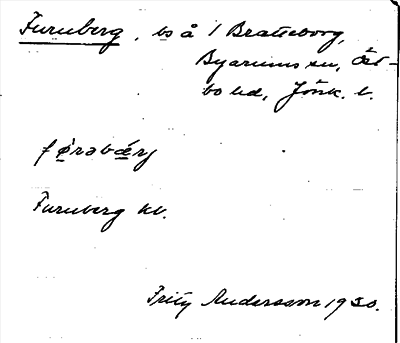 Furuberg, bs å 1 Bratteborg,
Byarums sn, Öst-
bo hd, Jönk. l.
Furuberg kv.
Fritz Andersson 1930.